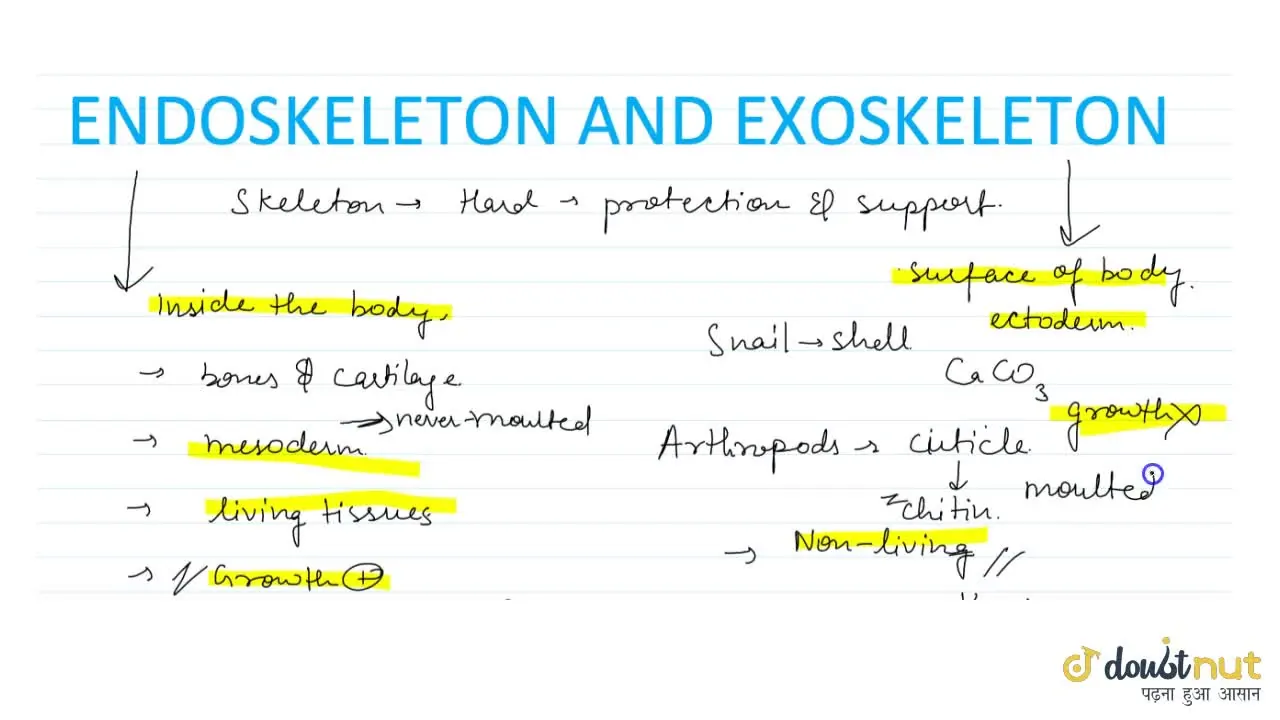 ENDOSKELETON AND EXOSKELETON
Skeleton → Hard → protection & support.
Inside the body,
→ bones & cartilage
→ never-moulted
→ mesoderm.
→ living tissues
→ Growth +
surface of body.
ectoderm.
Snail → shell
CaCO3
growth X
Arthropods → cuticle
↓
chitin.
moulted
→ Non-living //
doubtnut
पढ़ना हुआ आसान